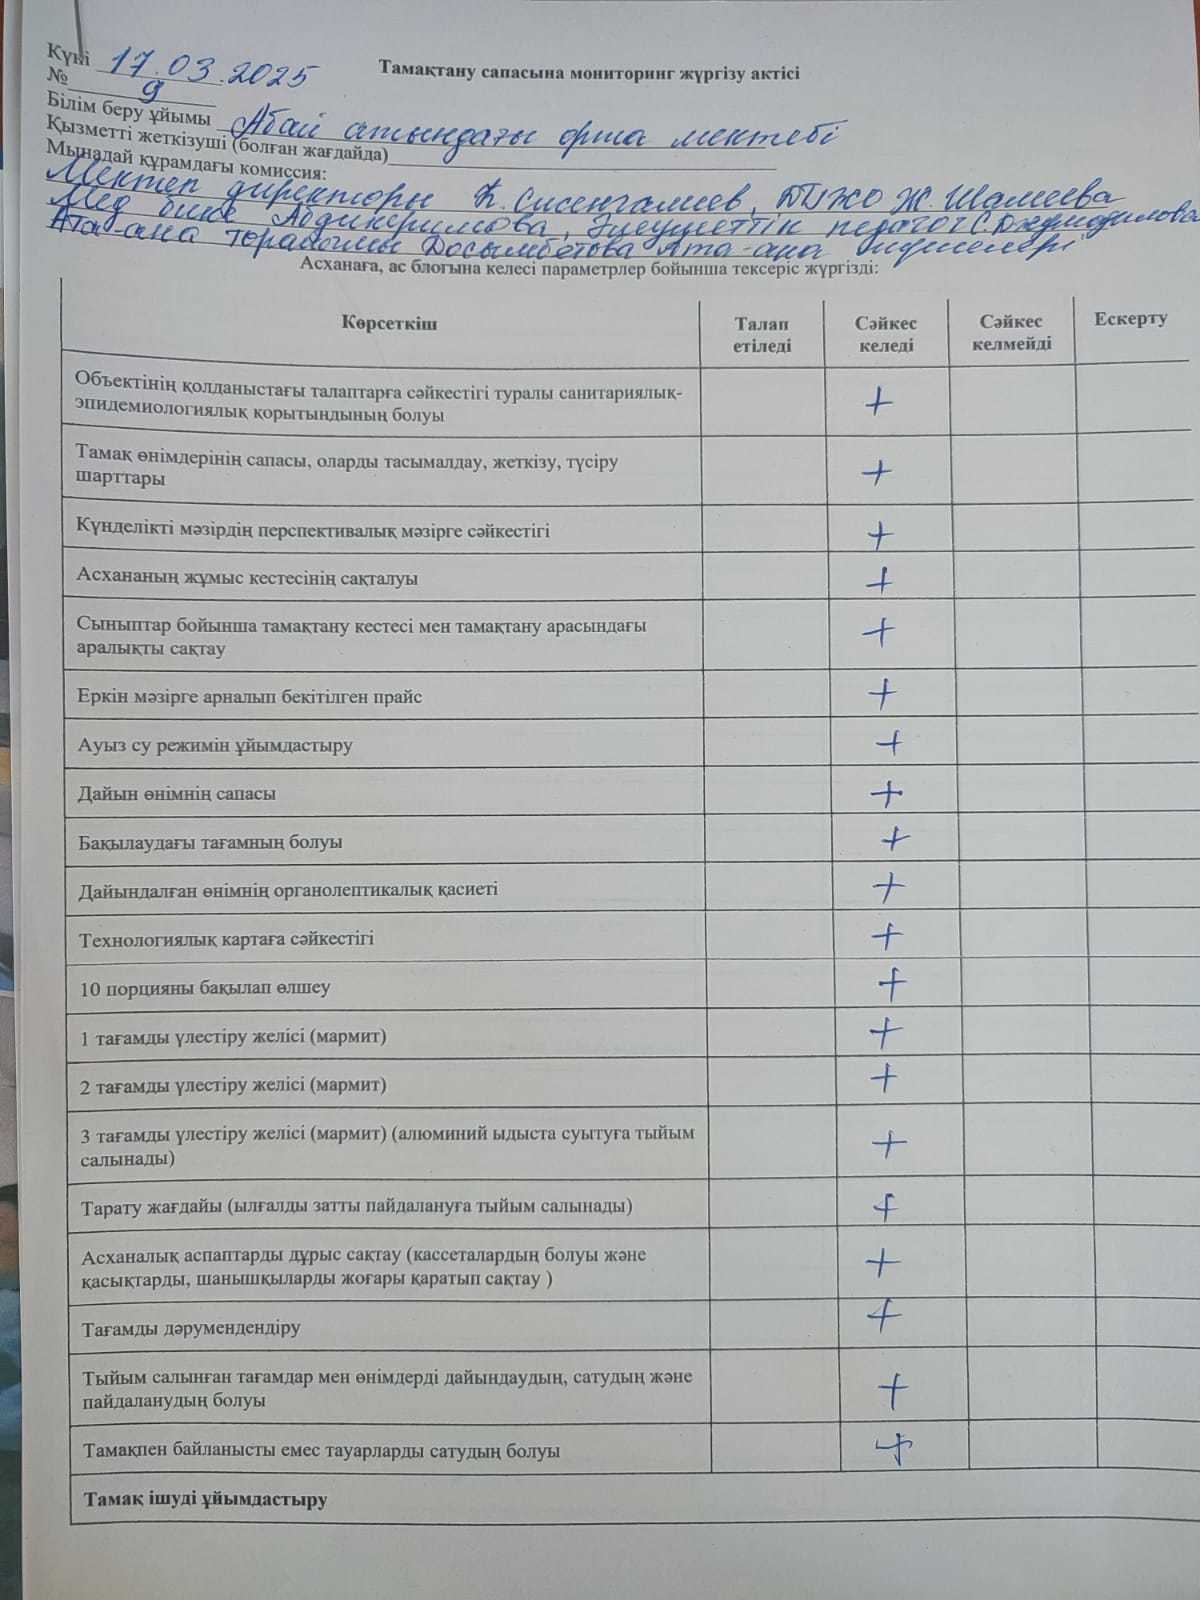 Күні 17.03.2025
Тамақтану сапасына мониторинг жүргізу актісі
№ 9
Білім беру ұйымы Абай атындағы орта мектебі
Қызметті жеткізуші (болған жағдайда)
Мынадай құрамдағы комиссия:
Мектеп директоры Қ. Сисенгалиев, ДТІЖО Ж. Шамеева
Мед бике Абдикеримова, Әлеуметтік педагог С.
Ата-ана төрайымы Досымбетова Ата-ана өкілдері
Асханаға, ас блогына келесі параметрлер бойынша тексеріс жүргізді:
Көрсеткіш Талап етіледі Сәйкес келеді Сәйкес келмейді Ескерту
Объектінің қолданыстағы талаптарға сәйкестігі туралы санитариялық-
эпидемиологиялық қорытындының болуы +
Тамақ өнімдерінің сапасы, оларды тасымалдау, жеткізу, түсіру
шарттары +
Күнделікті мәзірдің перспективалық мәзірге сәйкестігі +
Асхананың жұмыс кестесінің сақталуы +
Сыныптар бойынша тамақтану кестесі мен тамақтану арасындағы
аралықты сақтау +
Еркін мәзірге арналып бекітілген прайс +
Ауыз су режимін ұйымдастыру +
Дайын өнімнің сапасы +
Бақылаудағы тағамның болуы +
Дайындалған өнімнің органолептикалық қасиеті +
Технологиялық картаға сәйкестігі +
10 порцияны бақылап өлшеу +
1 тағамды үлестіру желісі (мармит) +
2 тағамды үлестіру желісі (мармит) +
3 тағамды үлестіру желісі (мармит) (алюминий ыдыста суытуға тыйым
салынады) +
Тарату жағдайы (ылғалды затты пайдалануға тыйым салынады) +
Асханалық аспаптарды дұрыс сақтау (кассеталардың болуы және
қасықтарды, шанышқыларды жоғары қаратып сақтау ) +
Тағамды дәрумендендіру +
Тыйым салынған тағамдар мен өнімдерді дайындаудың, сатудың және
пайдаланудың болуы +
Тамақпен байланысты емес тауарларды сатудың болуы +
Тамақ ішуді ұйымдастыру